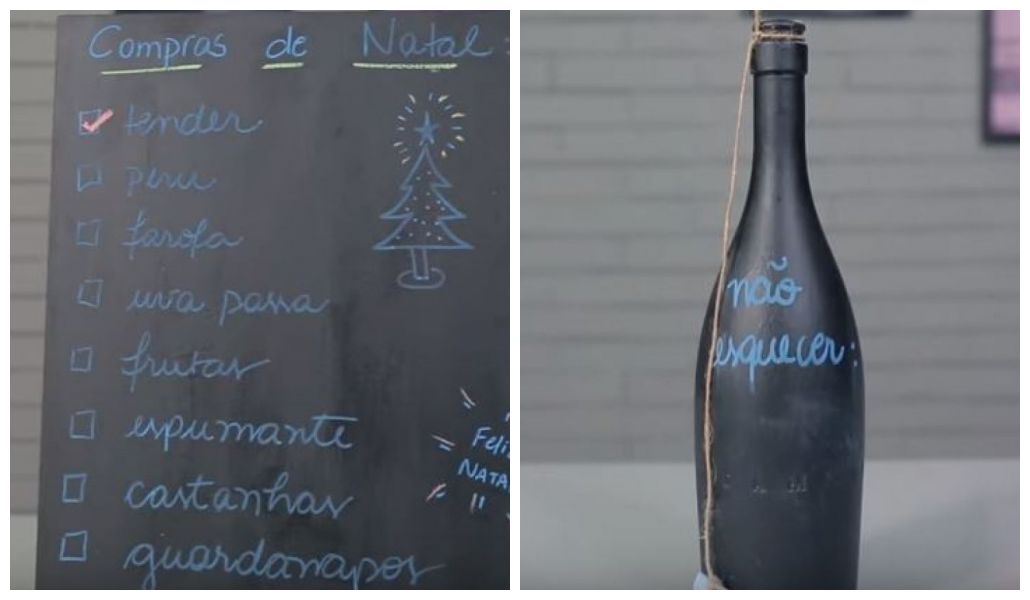 Compras de Natal:
tender
peru
farofa
uva passa
frutas
espumante
castanhas
guardanapos
Feliz
NATAL
!!
não
esquecer: